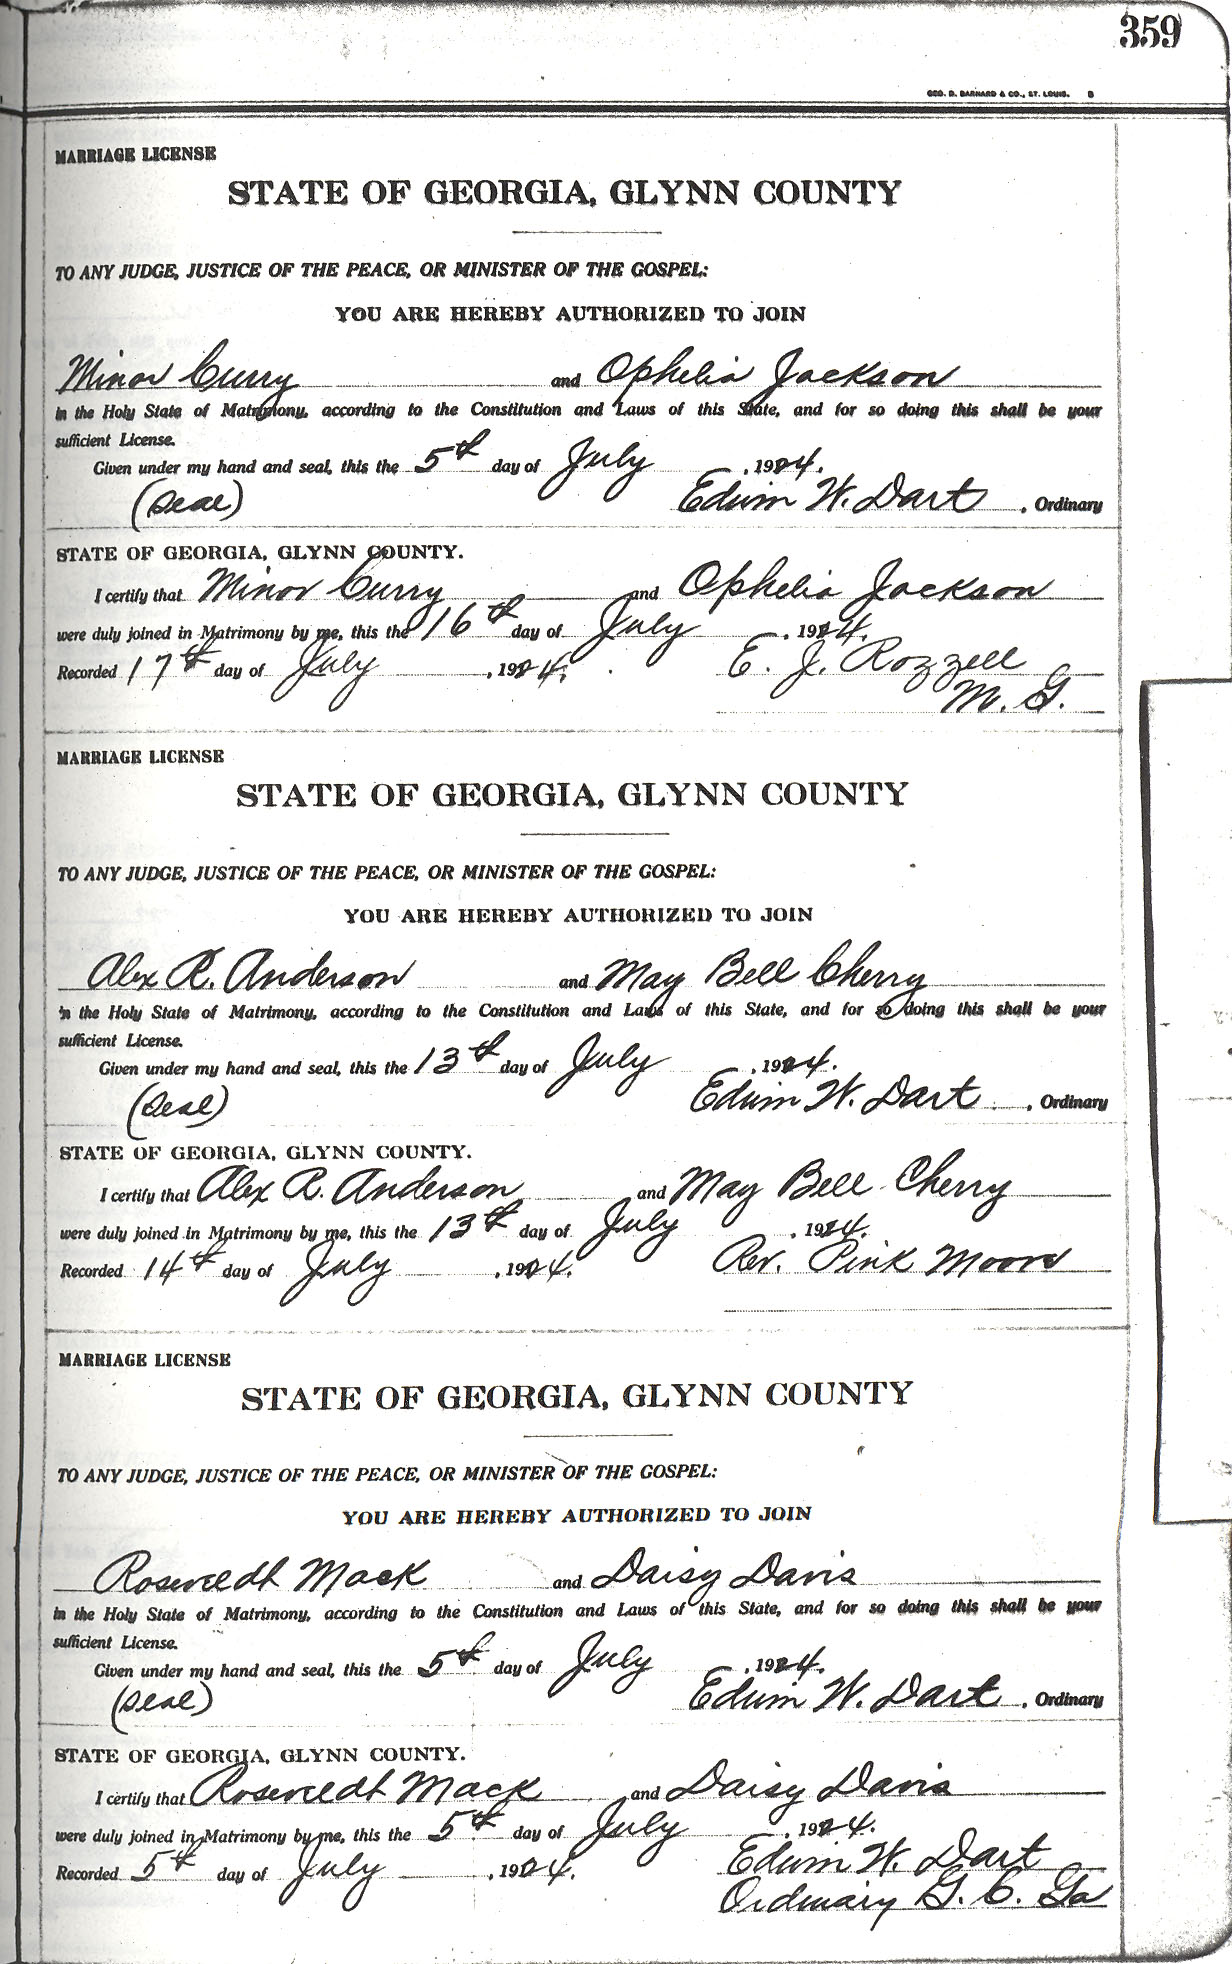 359
GEO. D. BARNARD & CO., ST. LOUIS. B
MARRIAGE LICENSE
STATE OF GEORGIA, GLYNN COUNTY
TO ANY JUDGE, JUSTICE OF THE PEACE, OR MINISTER OF THE GOSPEL:
YOU ARE HEREBY AUTHORIZED TO JOIN
Minor Curry and Ophelia Jackson
in the Holy State of Matrimony, according to the Constitution and Laws of this State, and for so doing this shall be your
sufficient License.
Given under my hand and seal, this the 5th day of July, 1924.
(Seal) Edwin W. Dart, Ordinary
STATE OF GEORGIA, GLYNN COUNTY.
I certify that Minor Curry and Ophelia Jackson
were duly joined in Matrimony by me, this the 16th day of July, 1924.
Recorded 17th day of July, 1924. E. J. Rozzell
M. G.
MARRIAGE LICENSE
STATE OF GEORGIA, GLYNN COUNTY
TO ANY JUDGE, JUSTICE OF THE PEACE, OR MINISTER OF THE GOSPEL:
YOU ARE HEREBY AUTHORIZED TO JOIN
Alex R. Anderson and May Bell Cherry
in the Holy State of Matrimony, according to the Constitution and Laws of this State, and for so doing this shall be your
sufficient License.
Given under my hand and seal, this the 13th day of July, 1924.
(Seal) Edwin W. Dart, Ordinary
STATE OF GEORGIA, GLYNN COUNTY.
I certify that Alex R. Anderson and May Bell Cherry
were duly joined in Matrimony by me, this the 13th day of July, 1924.
Recorded 14th day of July, 1924. Rev. Pink Moore
MARRIAGE LICENSE
STATE OF GEORGIA, GLYNN COUNTY
TO ANY JUDGE, JUSTICE OF THE PEACE, OR MINISTER OF THE GOSPEL:
YOU ARE HEREBY AUTHORIZED TO JOIN
Roseveldt Mack and Daisy Davis
in the Holy State of Matrimony, according to the Constitution and Laws of this State, and for so doing this shall be your
sufficient License.
Given under my hand and seal, this the 5th day of July, 1924.
(Seal) Edwin W. Dart, Ordinary
STATE OF GEORGIA, GLYNN COUNTY.
I certify that Roseveldt Mack and Daisy Davis
were duly joined in Matrimony by me, this the 5th day of July, 1924.
Recorded 5th day of July, 1924. Edwin W. Dart
Ordinary G. C. Ga